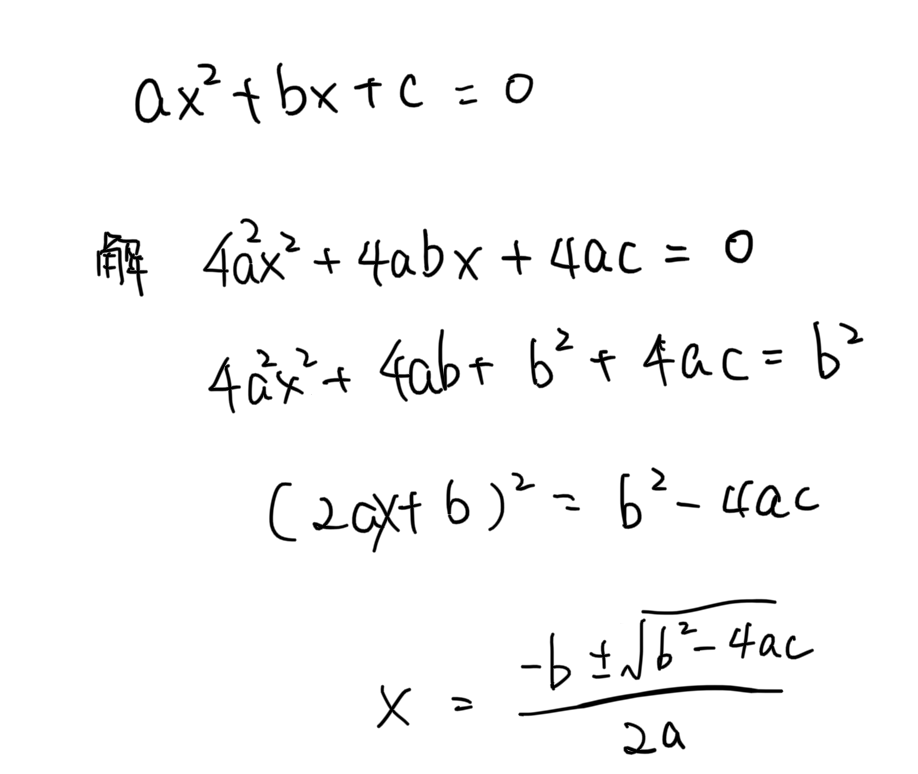 ax²+bx+c=0
解 4a²x²+4abx+4ac=0
4a²x²+4ab+b²+4ac=b²
(2ax+b)²=b²-4ac
x=\frac{-b±\sqrt{b²-4ac}}{2a}